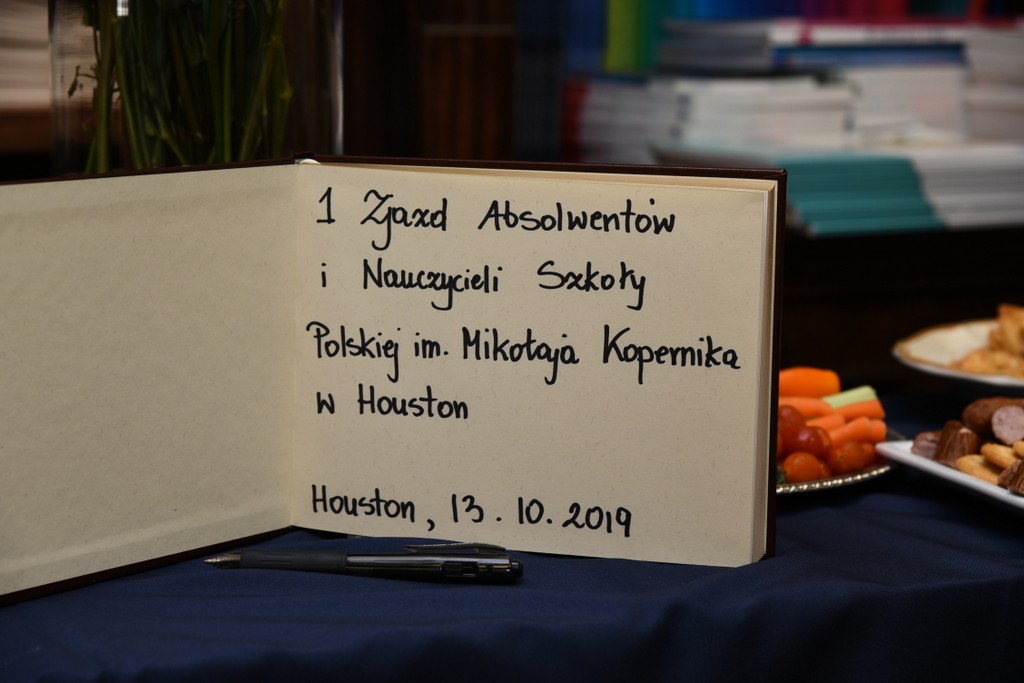 1 Zjazd Absolwentów
i Nauczycieli Szkoły
Polskiej im. Mikołaja Kopernika
w Houston
Houston, 13.10.2019